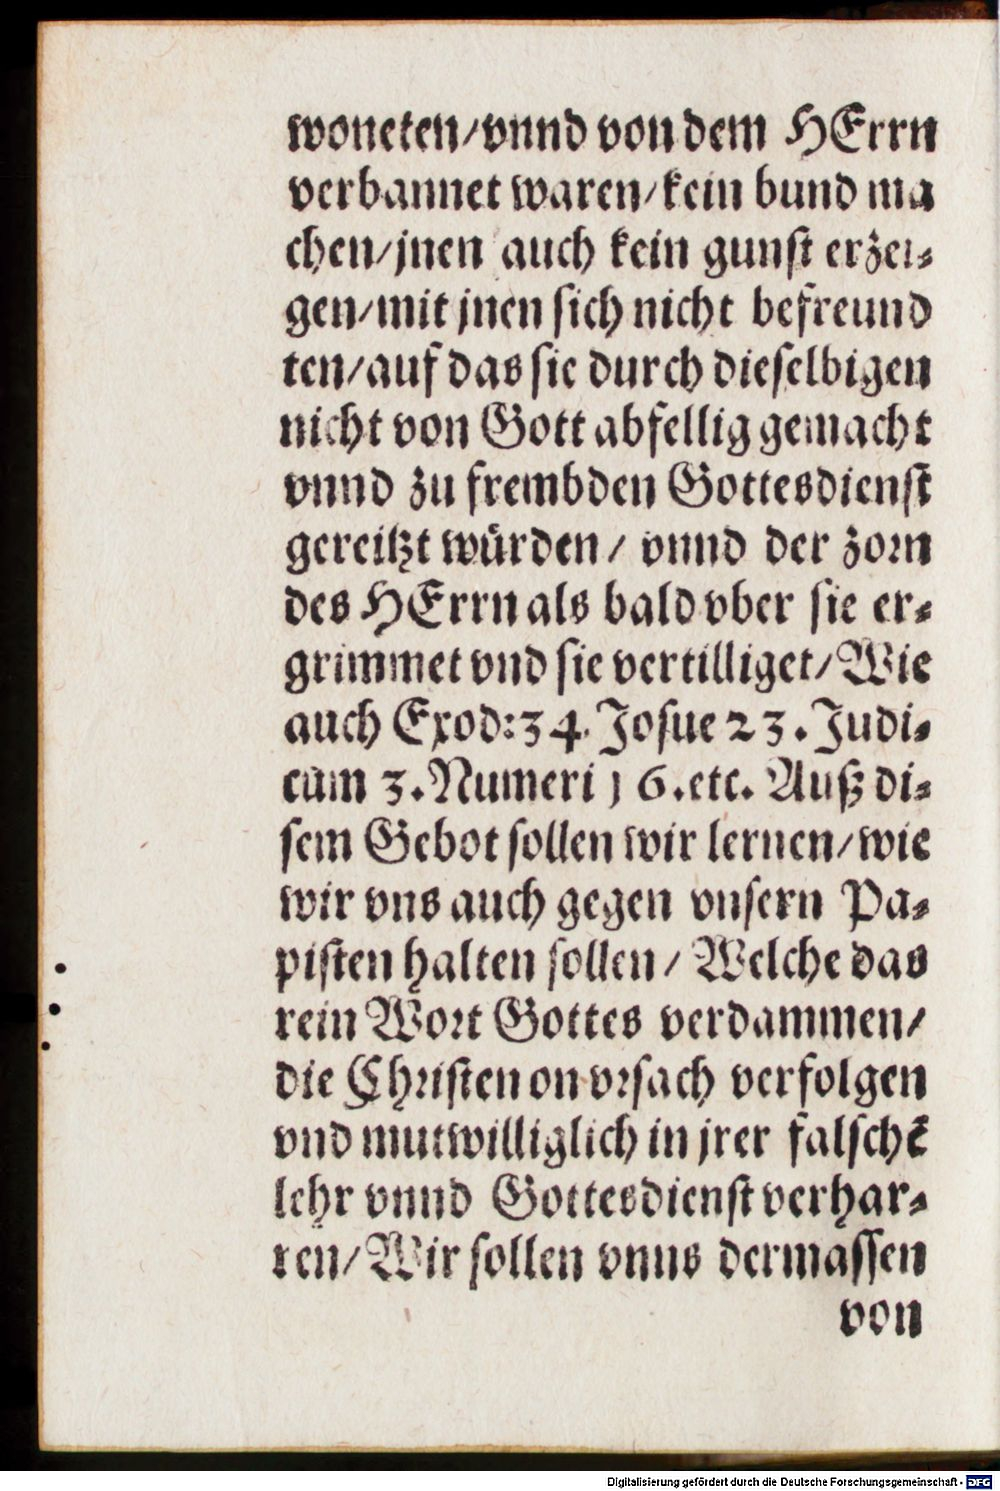 woneten/vnnd von dem HErrn
verbannet waren/kein bund ma
chen/jnen auch kein gunst erzei-
gen/mit jnen sich nicht befreund
ten/auf das sie durch dieselbigen
nicht von Gott abfellig gemacht
vnnd zu frembden Gottesdienst
gereitzt würden/ vnnd der zorn
des HErrn als bald vber sie er-
grimmet vnd sie vertilliget/Wie
auch Exod:34. Josue 23. Judi-
cum 3. Numeri 16.etc. Auß di-
sem Gebot sollen wir lernen/wie
wir vns auch gegen vnsern Pa-
pisten halten sollen/ Welche das
rein Wort Gottes verdammen/
die Christen on vrsach verfolgen
vnd mutwilliglich in jrer falschē
lehr vnnd Gottesdienst verhar-
ren/Wir sollen vnns dermassen
von
Digitalisierung gefördert durch die Deutsche Forschungsgemeinschaft - DFG